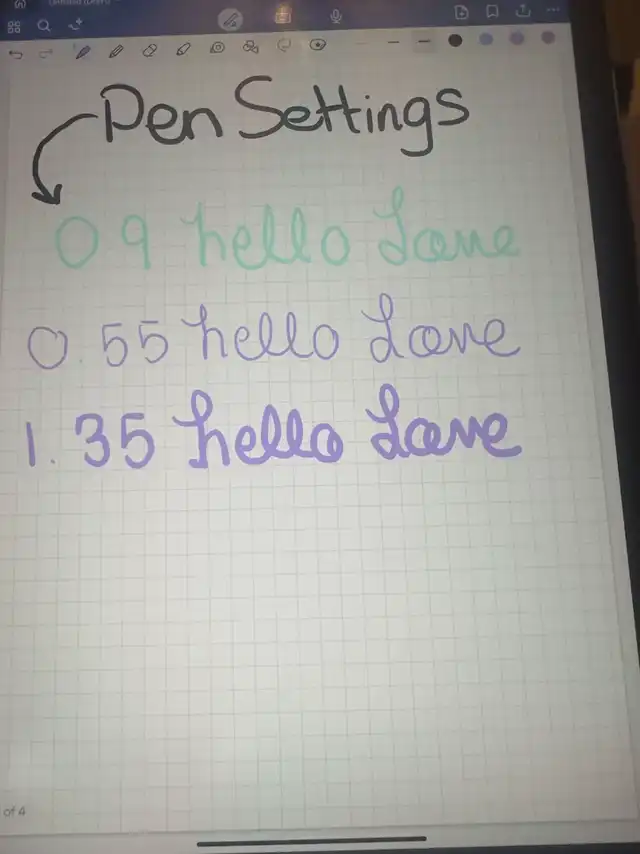 Pen Settings
0 9 hello Love
0.55 hello Love
1.35 hello Love
of 4